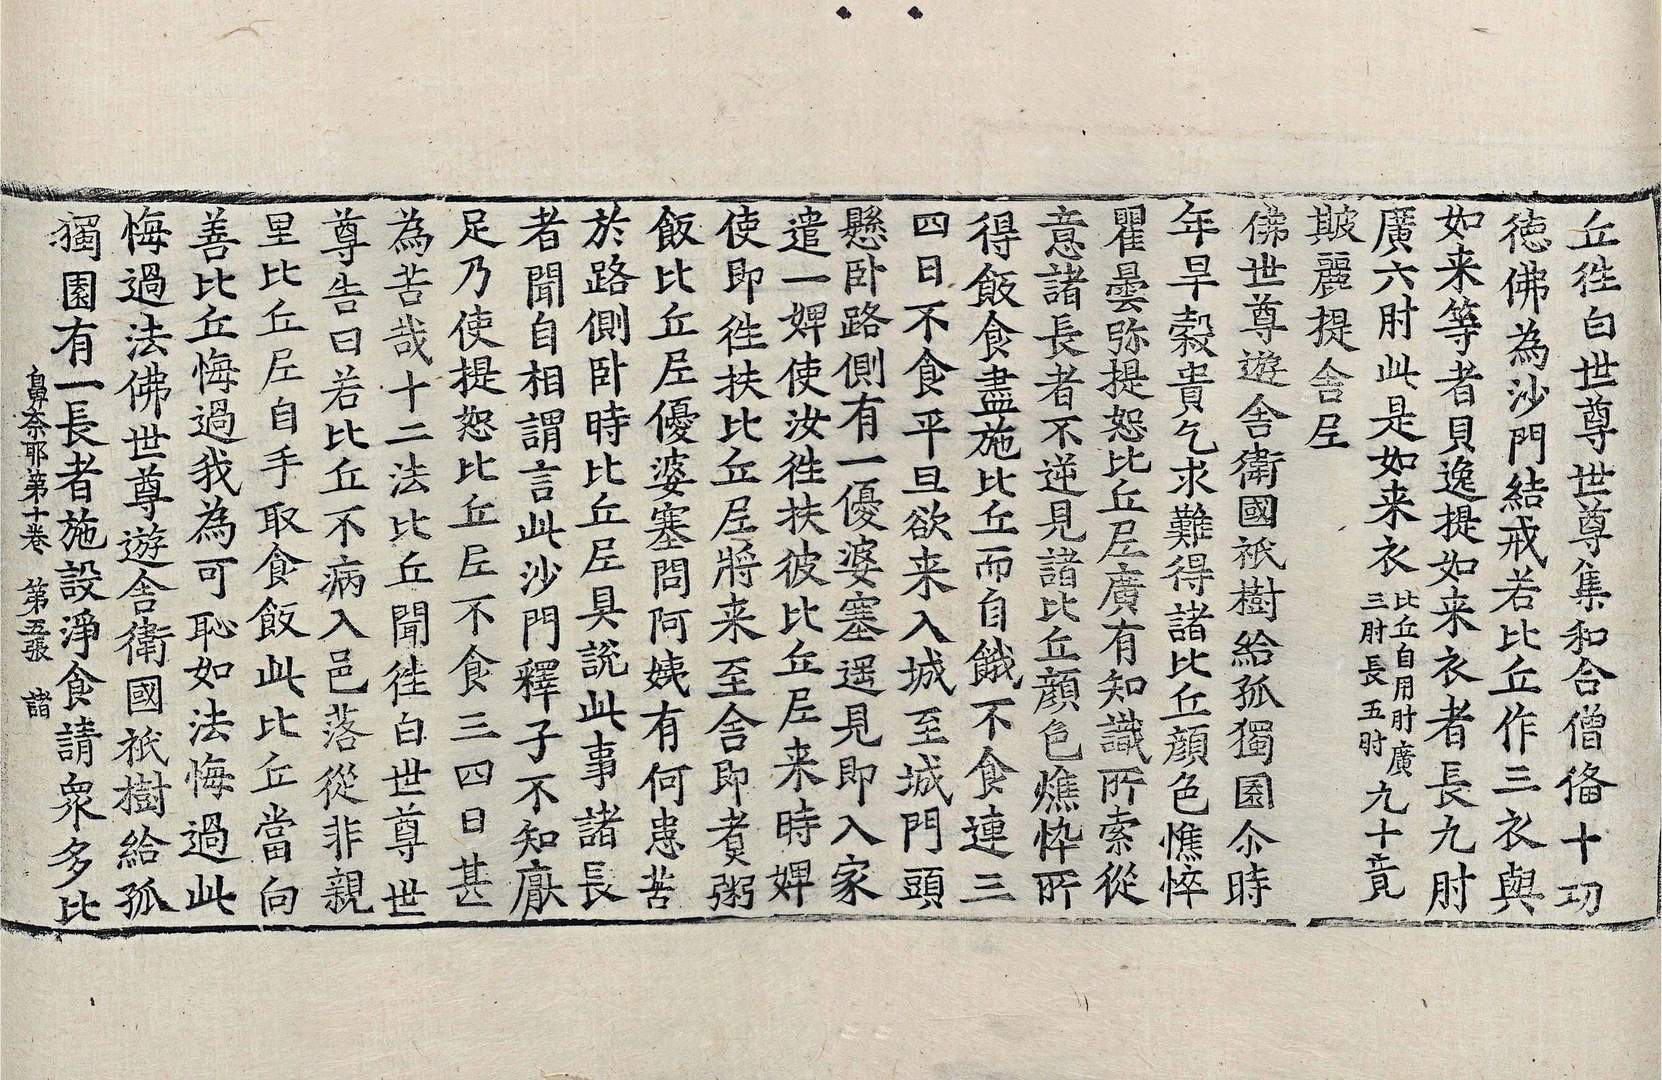 丘徃白世尊世尊集和合僧俻十功
徳佛為沙門結戒若比丘作三衣與
如来等者貝逸提如来衣者長九肘
廣六肘此是如来衣比丘自用肘廣三肘長五肘九十竟
䟦麗提舍𡰱
佛世尊遊舍衛國祇樹給孤獨園尒時
年旱糓貴乞求難得諸比丘顔色憔悴
瞿曇弥提恕比丘𡰱廣有知識所索從
意諸長者不逆見諸比丘顔色燋悴所
得飯食盡施比丘而自餓不食連三
四日不食平旦欲来入城至城門頭
懸卧路側有一優婆塞遥見即入家
遣一婢使汝徃扶彼比丘𡰱来時婢
使即徃扶比丘𡰱將来至舍即煑粥
飯比丘𡰱優婆塞問阿姨有何患苦
於路側卧時比丘𡰱具説此事諸長
者聞自相謂言此沙門釋子不知猒
足乃使提恕比丘𡰱不食三四日甚
為苦哉十二法比丘聞徃白世尊世
尊告曰若比丘不病入邑落從非親
里比丘𡰱自手取食飯此比丘當向
善比丘悔過我為可恥如法悔過此
悔過法佛世尊遊舍衛國祇樹給孤
獨園有一長者施設淨食請衆多比
鼻奈耶第十卷 第五張 諸